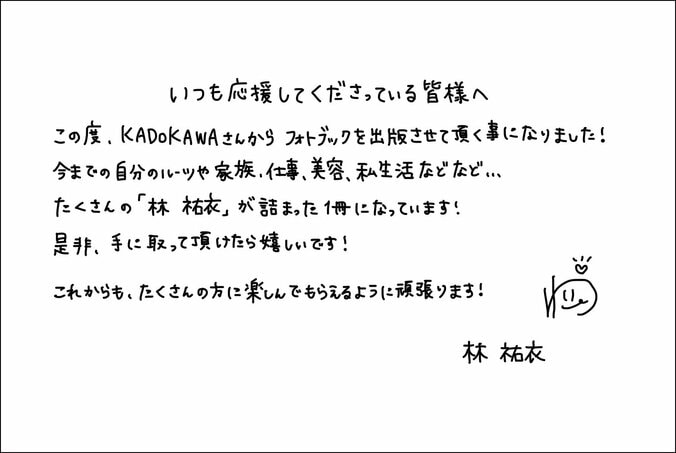 いつも応援してくださっている皆様へ
この度、KADOKAWAさんから フォトブックを出版させて頂く事になりました!
今までの自分のルーツや家族、仕事、美容、私生活などなど...
たくさんの「林 祐衣」が詰まった1冊になっています!
是非、手に取って頂けたら嬉しいです!
これからも、たくさんの方に楽しんでもらえるように頑張ります!
林 祐衣